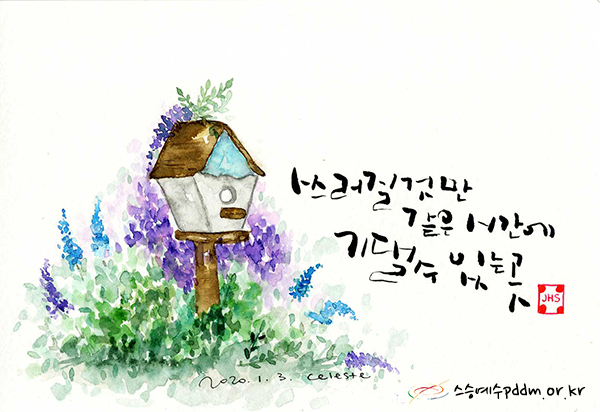 쓰러질것만
같은 시간에
기댈수 있는곳
JHS
2020. 1. 3. celeste
스승예수pddm.or.kr